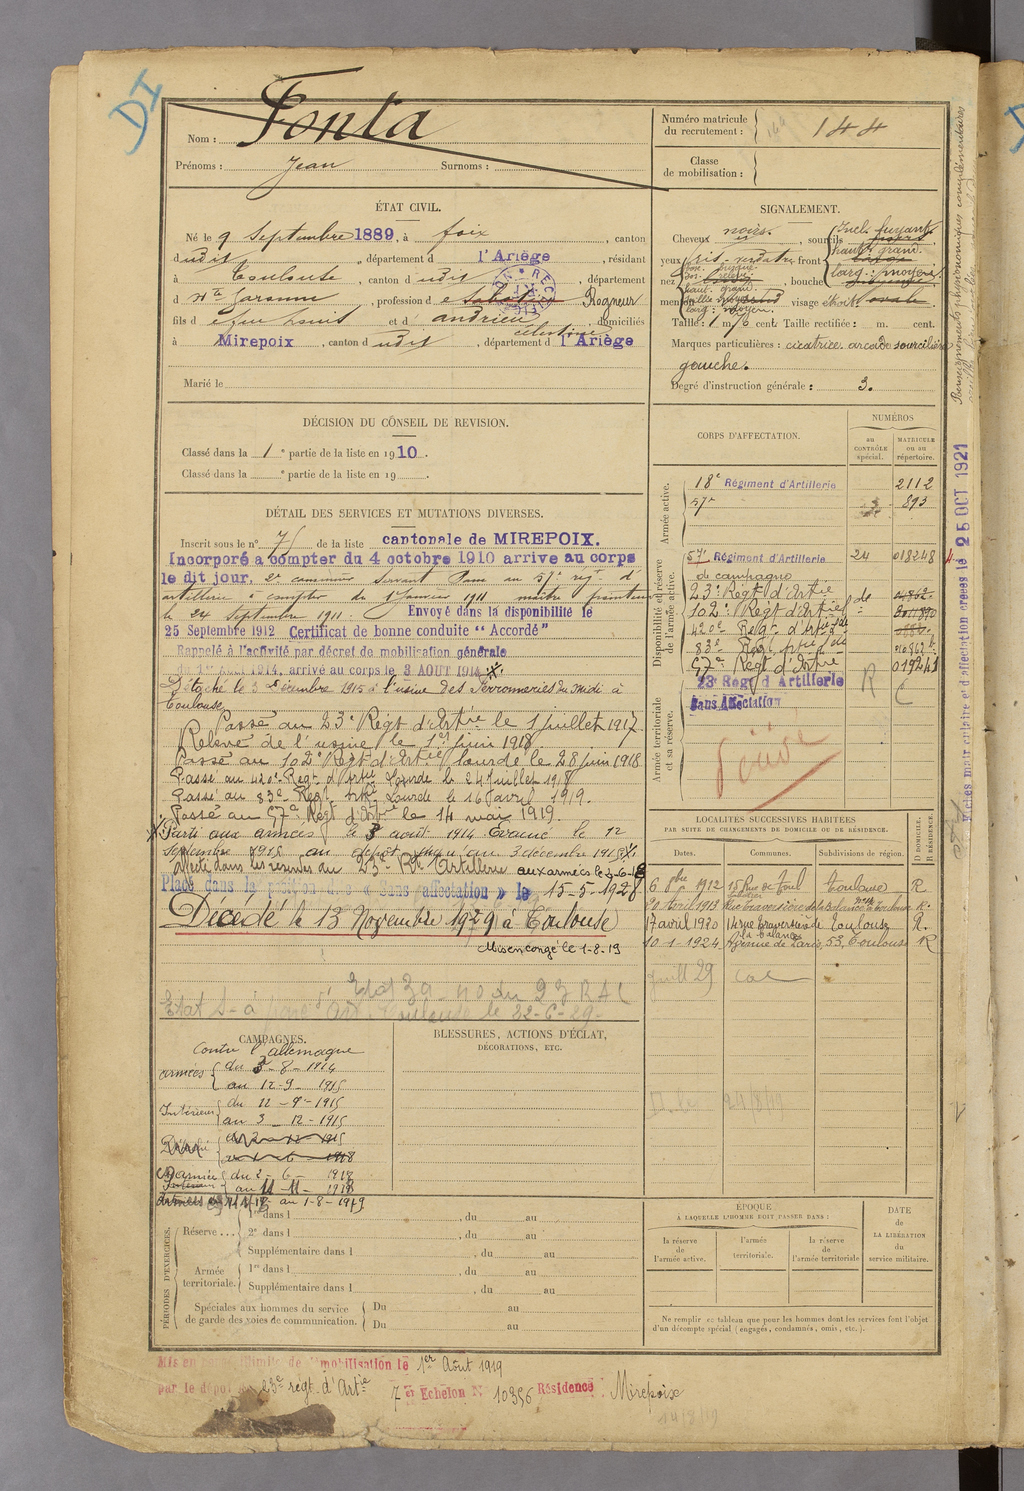 DI
Nom : Fonta
Prénoms : Jean Surnoms :
Numéro matricule du recrutement : 144
Classe de mobilisation :
ÉTAT CIVIL.
Né le 9 Septembre 1889, à foix, canton
dudit, département d l'Ariège, résidant
à Toulouse, canton dudit, département
d Hte Garonne, profession d Rogneur
fils d e feu Louis et d andrieu célestine, domiciliés
à Mirepoix, canton dudit, département d l'Ariège
Marié le
SIGNALEMENT.
Cheveux noirs, sourcils
yeux gris-verdatre front Incl: fuyant haut: grand larg: moyen
nez, bouche
menton visage
Taille : 1 m. 76 cent. Taille rectifiée : m. cent.
Marques particulières : cicatrice arcade sourcilière
gauche.
Degré d'instruction générale : 3.
DÉCISION DU CONSEIL DE REVISION.
Classé dans la 1e partie de la liste en 1910.
Classé dans la e partie de la liste en 19 .
DÉTAIL DES SERVICES ET MUTATIONS DIVERSES.
Inscrit sous le n° 75 de la liste cantonale de MIREPOIX.
Incorporé à compter du 4 octobre 1910 arrive au corps
le dit jour, 2e canonnier servant Passé au 57e rég. d'
artillerie à compter du 1 Janvier 1911 maître pointeur
le 24 Septembre 1911. Envoyé dans la disponibilité le
25 Septembre 1912 Certificat de bonne conduite "Accordé"
Rappelé à l'activité par décret de mobilisation générale
du 1er Août 1914, arrivé au corps le 3 AOUT 1914
Détaché le 3 décembre 1915 à l'usine des Ferronneries du Midi à
Toulouse
Passé au 23e Régt d'Artie le 1 juillet 1917
Relevé de l'usine le 1er juin 1918
Passé au 102e Régt d'Artie lourde le 28 juin 1918
Passé au 420e Régt d'Artie Lourde le 24 Juillet 1918
Passé au 83e Regt Artie Lourde le 16 avril 1919.
Passé au 57e Régt d'Artie le 14 mai 1919.
Parti aux armées le 3 août 1914 Evacué le 12
Septembre 1915 au dépôt jusqu'au 3 décembre 1915
Affecté dans les réserves au 23e Rt Artillerie aux armées le 2-6-18
Placé dans la position dite « Sans affectation » le 15-5-1928
Décédé le 13 Novembre 1929 à Toulouse
Mis en congé le 1-8-19
CORPS D'AFFECTATION.
NUMÉROS
au CONTRÔLE spécial.
MATRICULE ou au répertoire.
Armée active.
18e Régiment d'Artillerie 2112
57e 893
Disponibilité et réserve de l'armée active.
57e Régiment d'Artillerie 24 018248
de campagne
23e Regt d'Artie
102e Regt d'Artie lde
420e Regt d'Artie lde
83e Regt Artie lde
57e Regt d'Artie 019241
Armée territoriale et sa réserve.
23e Rég d'Artillerie R
Sans Affectation
LOCALITÉS SUCCESSIVES HABITÉES
PAR SUITE DE CHANGEMENTS DE DOMICILE OU DE RÉSIDENCE.
Dates. Communes. Subdivisions de région. D DOMICILE. R RÉSIDENCE.
6 8bre 1912 15 Rue de Toul Toulouse R
20 Avril 1913 Rue traversière de la Balance Toulouse R.
17 avril 1920 14 rue traversière de la balance Toulouse R.
10-1-1924 Avenue de Paris, 53, Toulouse R
Juill 29
Fiches matriculaire et d'affectation créées le 25 OCT 1921
CAMPAGNES.
Contre l'allemagne
armées du 3-8-1914
au 12-9-1915
Intérieur du 12-9-1915
au 3-12-1915
armées du 2-6-1918
au 11-11-1918
au 1-8-1919
BLESSURES, ACTIONS D'ÉCLAT,
DÉCORATIONS, ETC.
24/8/19
PÉRIODES D'EXERCICES.
Réserve... 1re dans l , du au
2e dans l , du au
Supplémentaire dans l , du au
Armée territoriale. 1re dans l , du au
Supplémentaire dans l , du au
Spéciales aux hommes du service de garde des voies de communication. Du au
Du au
ÉPOQUE
A LAQUELLE L'HOMME DOIT PASSER DANS :
la réserve de l'armée active.
l'armée territoriale.
la réserve de l'armée territoriale
DATE de LA LIBÉRATION du service militaire.
Ne remplir ce tableau que pour les hommes dont les services font l'objet
d'un décompte spécial (engagés, condamnés, omis, etc.).
Mis en congé illimité de démobilisation le 1er Août 1919
par le dépôt du 23e régt. d'Artie 7er Echelon N° 10356 Résidence : Mirepoix
14/8/19